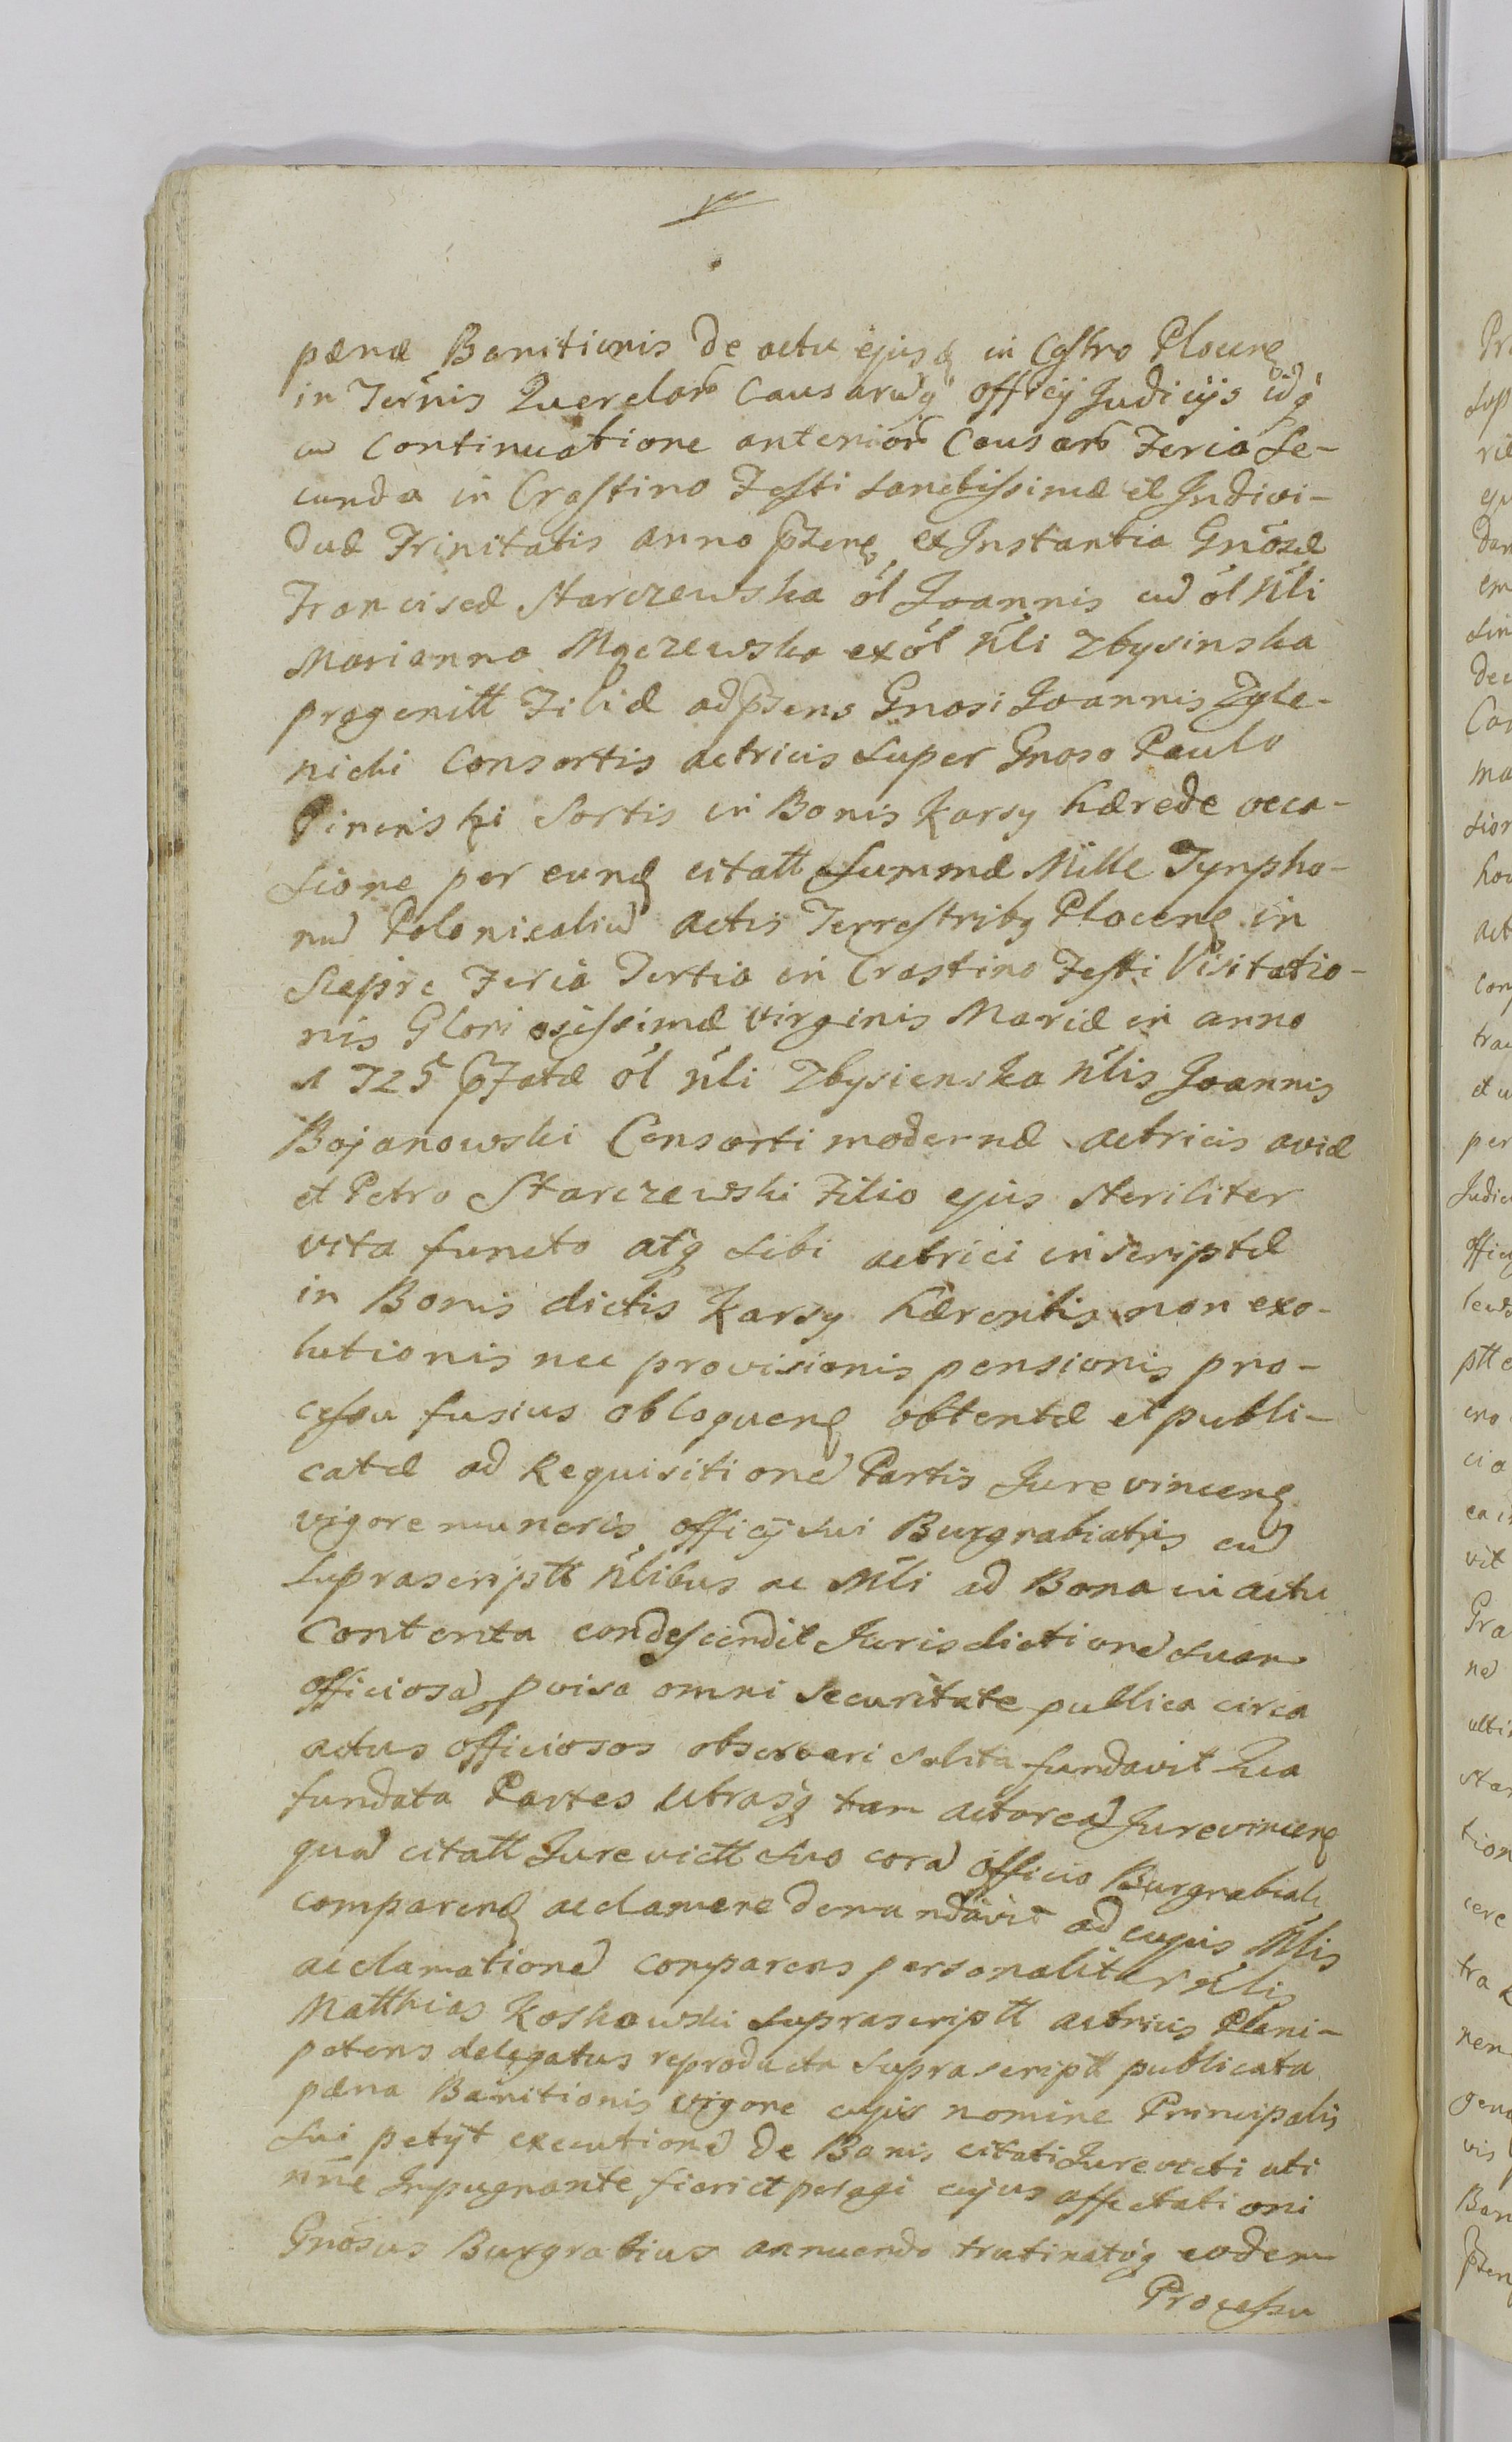 pænæ Banitionis de actu ejusd in Castro Plocens
in Terñis Querelarũ Causarũq officij Judicijs idq
cũ Continuatione anteriorũ Causarũ Feria Se-
cunda in Crastino Festi Sanctissimæ et Indivi-
duæ Trinitatis anno p̃zens ex Instantia Gnõsæ
Franciscæ Starczewska ol̃ Joannis cũ ol̃ Nl̃i
Marianna Mączewska ex ol̃ Nl̃i Zbysinska
progenitt Filiæ ad p̃zens Gnosi Joannis Zgle-
nicki Consortis actricis Super Gnoso Paulo
Pininski Sortis in Bonis Karsy hærede occa-
sione per eund citatt Summæ Mille Tynpho-
nũ Polonicaliũ actis Terrestribq Plocens in
Sieprc Feria Tertia in Crastino Festi Visitatio-
nis Gloriosissimæ Virginis Mariæ in anno
1725 p̃fatæ ol̃ Nl̃i Zbysienska Nl̃is Joannis
Bojanowski Consorti modernæ actricis aviæ
et Petro Starczewski Filio ejus steriliter
vita functo atq sibi actrici inscriptæ
in Bonis dictis Karsy hærentis non exo-
lutionis nec provisionis pensionis pro-
cessu fusius obloquend obtentæ et publi-
catæ ad Requisitionẽ Partis Jure vincens
vigore muneris officij sui Burgrabiatus cũ
Suprascriptt Nl̃ibus ac Ml̃i ad Bona in actu
Contenta condescendit Jurisdictionẽ Suam
officiosã pvisa omni Securitate publica circa
actus officiosos observari solita fundavit Qua
fundata Partes utrasq tam actoreã Jure vincens
quã citatt Jure victt suo corã officio Burgrabiali
comparend acclamare demandavit ad cujus Ml̃is
acclamationẽ comparens personaliter Nl̃is
Matthias Koskowski Suprascriptt actricis Pleni-
potens delegatus reproducta Suprascriptt publicata
pæna Banitionis vigore cujus nomine Principalis
Sui petijt executionẽ de Bonis citati Jure victi uti
nm̃e Inpugnante fieri et peragi cujus affectationi
Gnõsus Burgrabius annuendo trutinatoq eodem
Processu